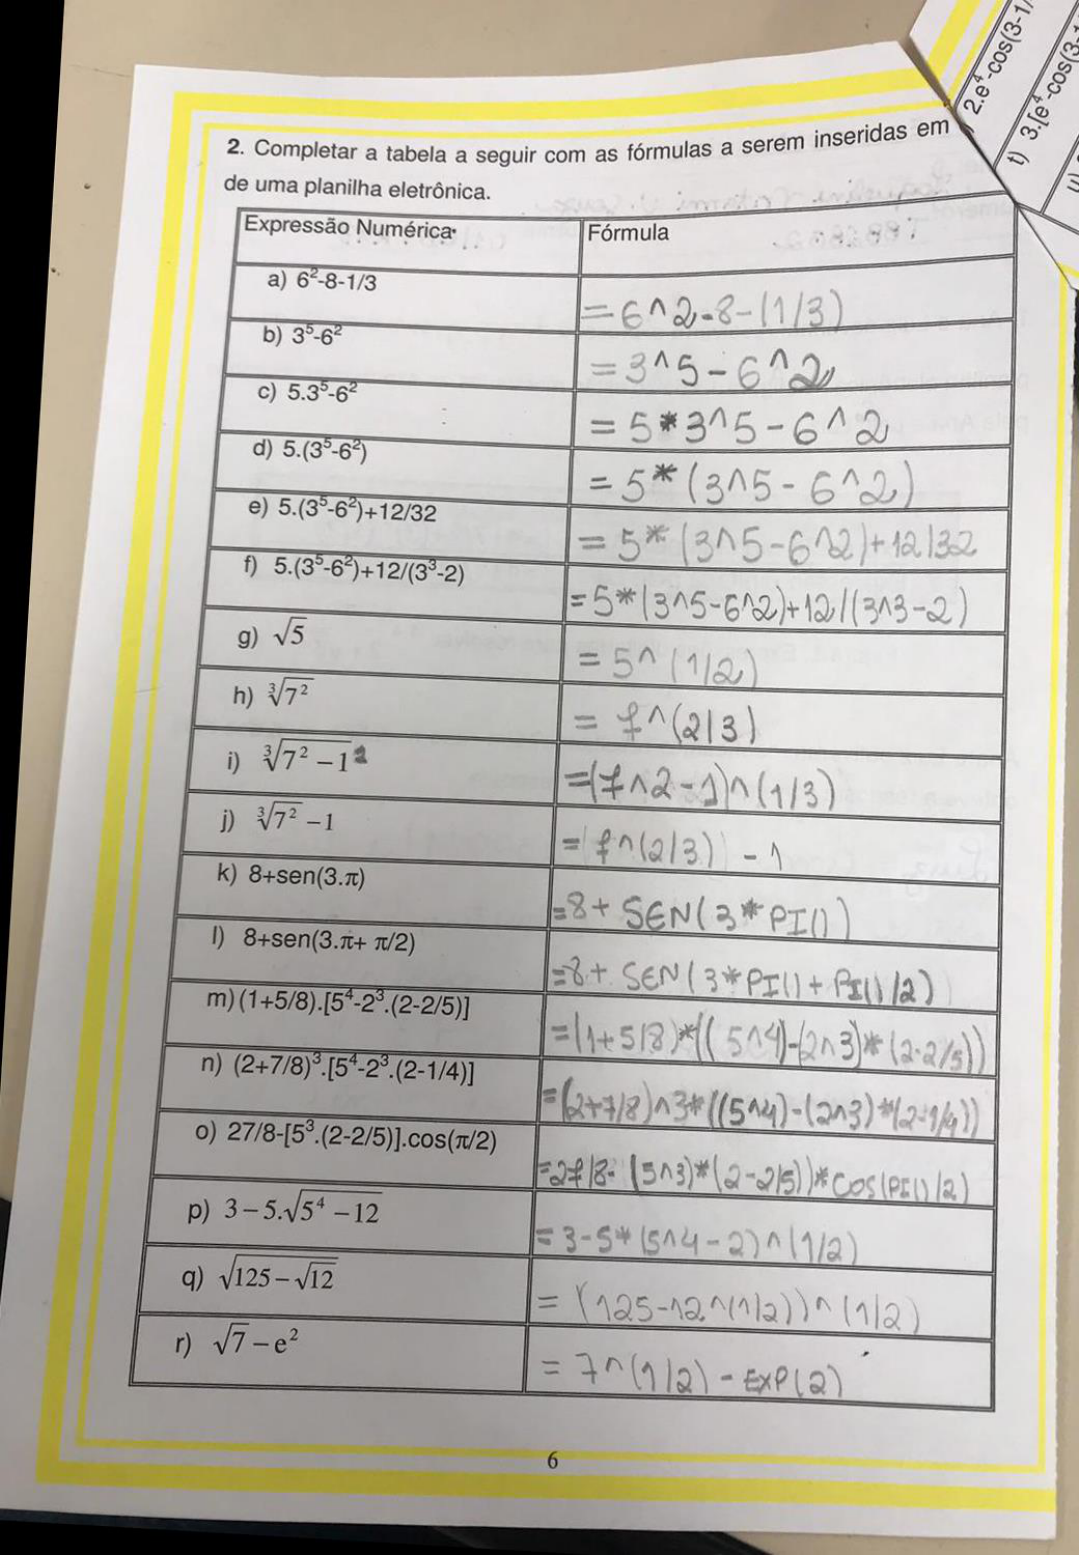 2.e⁴-cos(3-1/
t) 3.[e⁴-cos(3-1
2. Completar a tabela a seguir com as fórmulas a serem inseridas em
de uma planilha eletrônica.
Expressão Numérica Fórmula
a) 6²-8-1/3 =6^2-8-(1/3)
b) 3⁵-6² =3^5-6^2
c) 5.3⁵-6² =5*3^5-6^2
d) 5.(3⁵-6²) =5*(3^5-6^2)
e) 5.(3⁵-6²)+12/32 =5*(3^5-6^2)+12/32
f) 5.(3⁵-6²)+12/(3³-2) =5*(3^5-6^2)+12/((3^3-2)
g) √5 =5^(1/2)
h) ∛7² =7^(2/3)
i) ∛(7²-1) =(7^2-1)^(1/3)
j) ∛7²-1 =(7^(2/3))-1
k) 8+sen(3.π) =8+SEN(3*PI())
l) 8+sen(3.π+ π/2) =8+SEN(3*PI()+PI()/2)
m) (1+5/8).[5⁴-2³.(2-2/5)] =(1+5/8)*((5^4)-(2^3)*(2-2/5))
n) (2+7/8)³.[5⁴-2³.(2-1/4)] =(2+7/8)^3*((5^4)-(2^3)*(2-1/4))
o) 27/8-[5³.(2-2/5)].cos(π/2) =27/8-(5^3)*(2-2/5))*COS(PI()/2)
p) 3-5.√(5⁴-12) =3-5*(5^4-2)^(1/2)
q) √(125-√12) =(125-12^(1/2))^(1/2)
r) √7-e² =7^(1/2)-EXP(2)
6